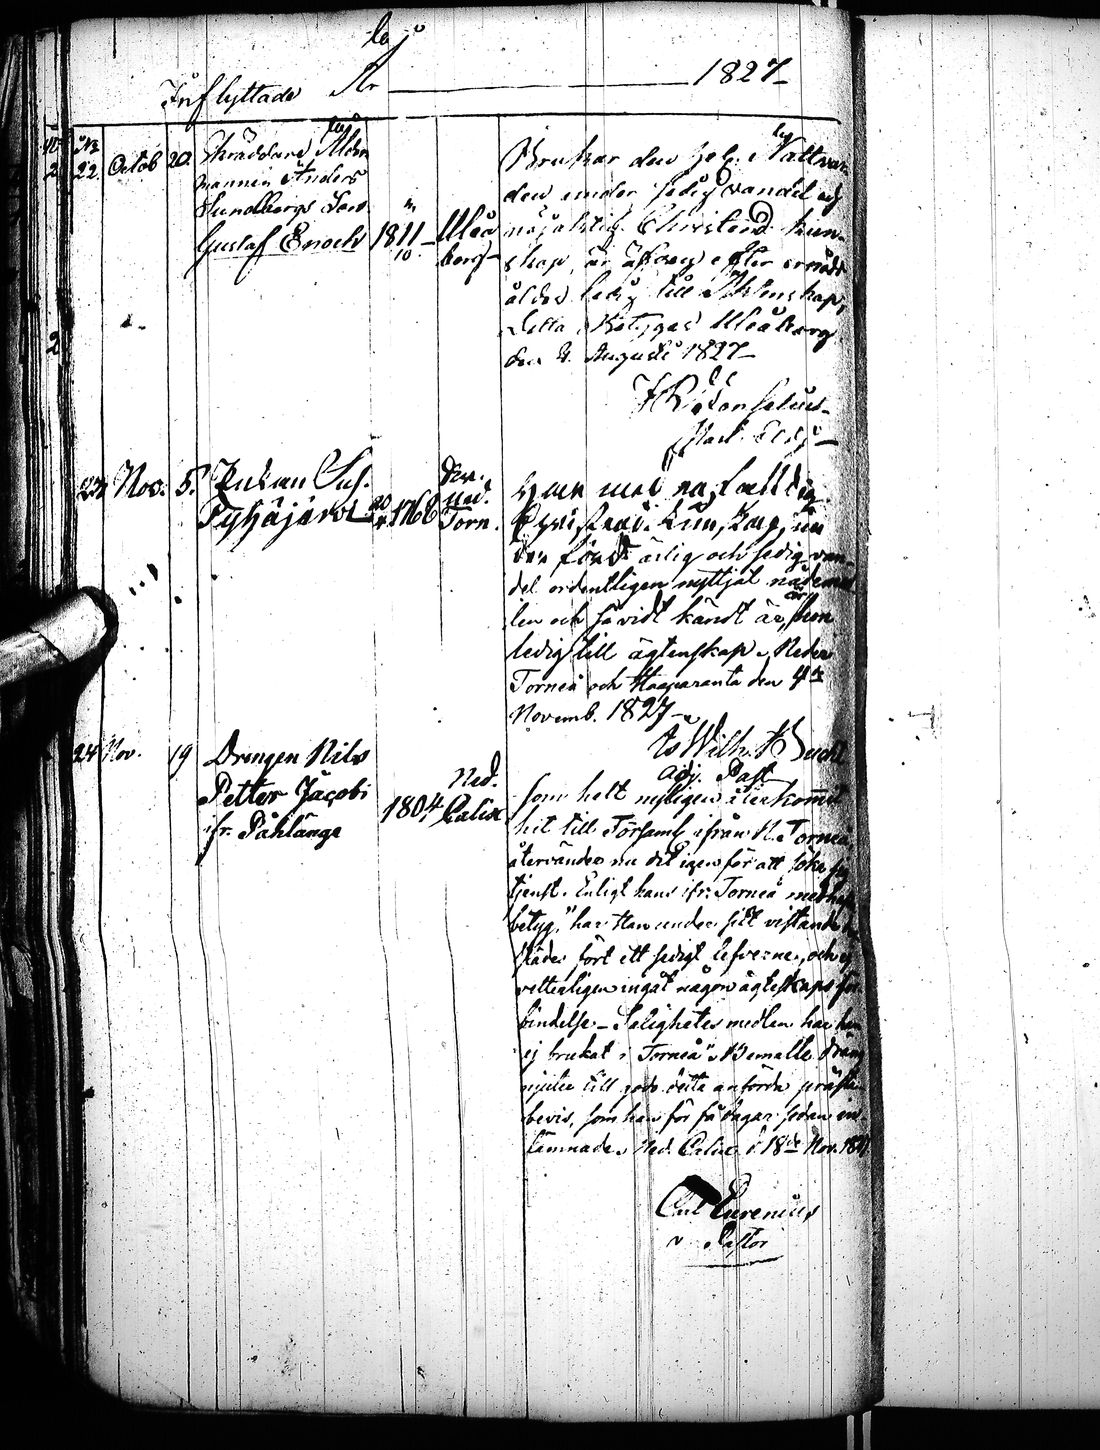 Inflyttade År 1827
N:
22. Octob 20. Skräddare Ålder
mannen Anders
Sundbergs Son
Gustaf Enoch 1811 Uleå
10 borg
Brukar den hel. Nattvar
den under sedig vandel och
nöjaktig Christend. kun-
skap, är äfven efter
ålder ledig till Äktenskap,
Detta betygas Uleåborg
den 8. Augusti 1827
23 Nov. 5. Enkan Sus.
Pyhäjärvi 1766 Ned.
Torn.
Har med nöjaktig
Christend. Kunskap, un
der fördt ärlig och sedig van-
del ordentligen nyttjat nådemed
len och så vidt kändt är, hon
ledig till ägtenskap. Neder
Torneå och Haaparanta den 4de
Novemb. 1827
Wilh. Bucht
adj. Past.
24 Nov. 19 Drengen Nils
Petter Jacobi
ifr. Påhlänge
1804 Ned.
Calix
Som helt nyligen återkommit
hit till Församl. ifrån N. Torneå,
återvänder nu dit igen för att söka sig
tjenst. Enligt hans ifr. Torneå medhafde
betyg, "har Han under sitt vistande
städes fört ett sedigt lefverne, och ej
vetterligen ingåt någon ägteskaps för
bindelse - Salighetes medlen har han
ej brukat i Torneå". Bemälte dräng
njuter till godo detta anförda präste
bevis, som han för få dagar sedan in
lämnade. Ned. Calix d. 18de Nov. 1827
Carl Eurenius
v. Pastor